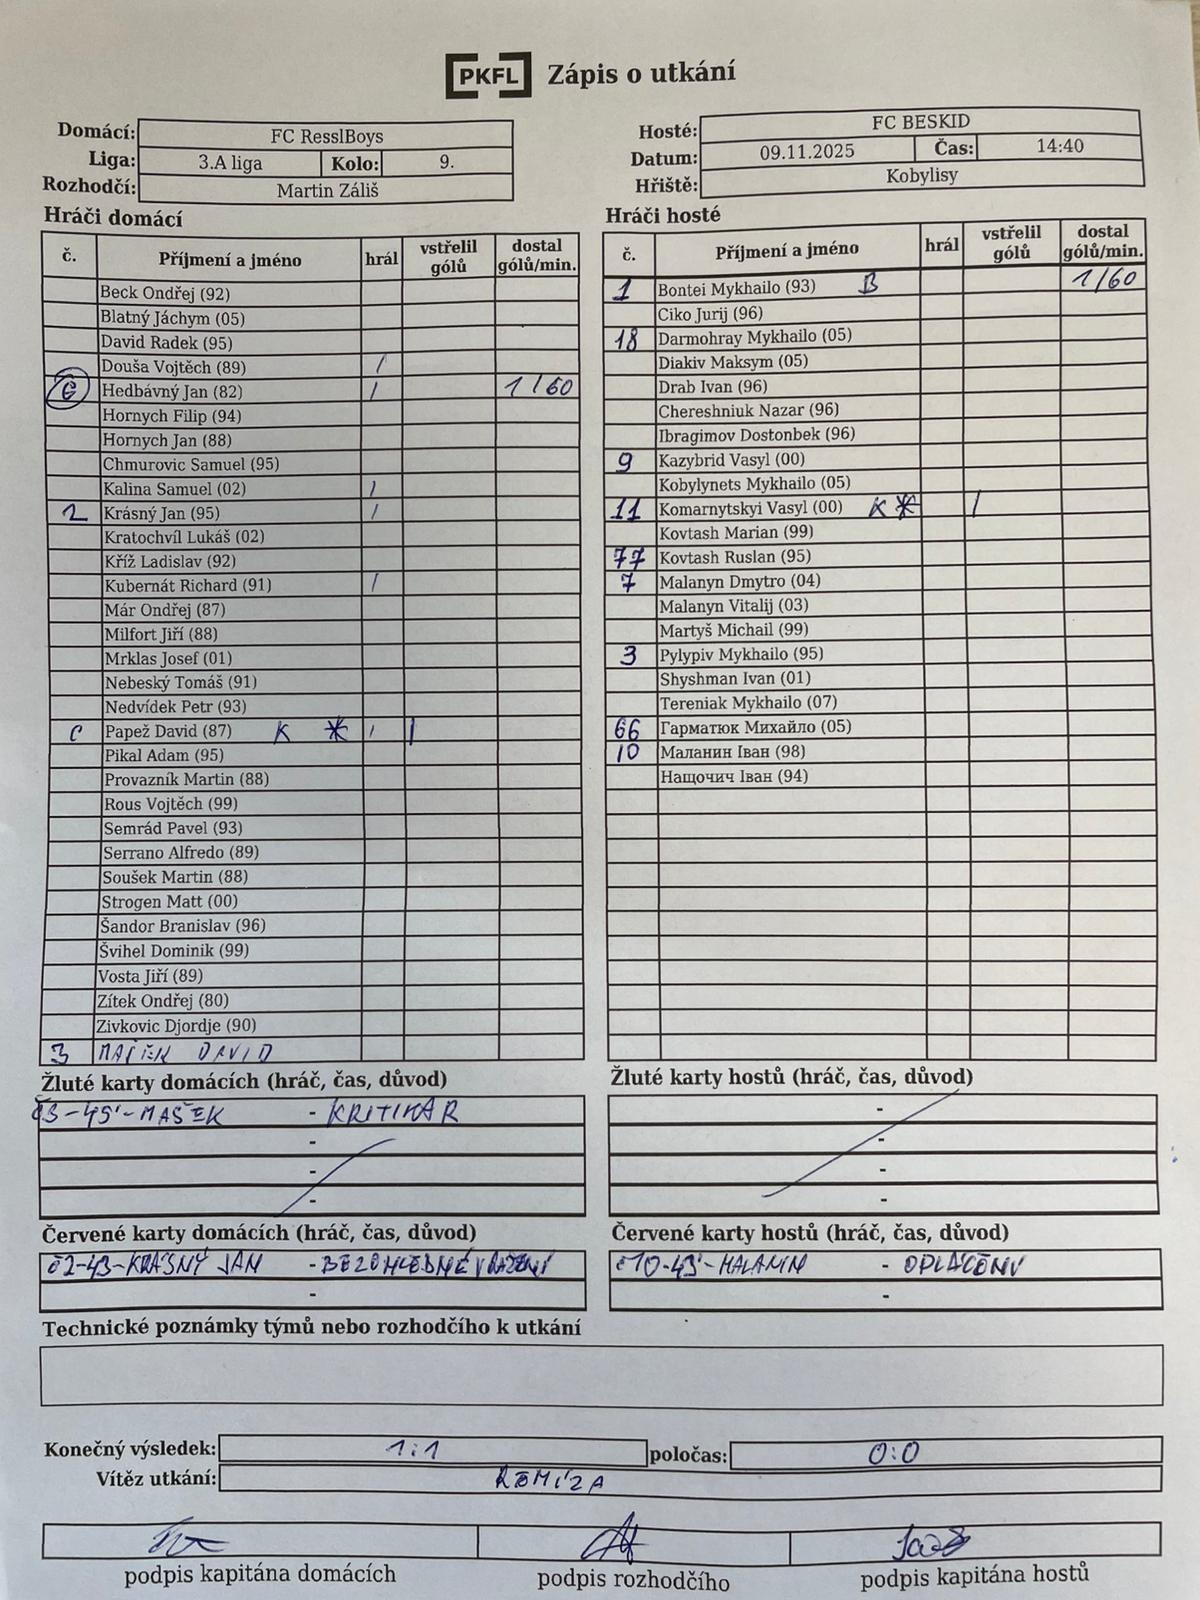 PKFL Zápis o utkání
Domácí: FC ResslBoys
Liga: 3.A liga Kolo: 9.
Rozhodčí: Martin Záliš
Hosté: FC BESKID
Datum: 09.11.2025 Čas: 14:40
Hřiště: Kobylisy
Hráči domácí
č. Příjmení a jméno hrál vstřelil gólů dostal gólů/min.
Beck Ondřej (92)
Blatný Jáchym (05)
David Radek (95)
Douša Vojtěch (89) /
G Hedbávný Jan (82) / 1/60
Hornych Filip (94)
Hornych Jan (88)
Chmurovic Samuel (95)
Kalina Samuel (02) /
2 Krásný Jan (95) /
Kratochvíl Lukáš (02)
Kříž Ladislav (92)
Kubernát Richard (91) /
Már Ondřej (87)
Milfort Jiří (88)
Mrklas Josef (01)
Nebeský Tomáš (91)
Nedvídek Petr (93)
C Papež David (87) K * / |
Pikal Adam (95)
Provazník Martin (88)
Rous Vojtěch (99)
Semrád Pavel (93)
Serrano Alfredo (89)
Soušek Martin (88)
Strogen Matt (00)
Šandor Branislav (96)
Švihel Dominik (99)
Vosta Jiří (89)
Zítek Ondřej (80)
Zivkovic Djordje (90)
3 MAŠEK DAVID
Hráči hosté
č. Příjmení a jméno hrál vstřelil gólů dostal gólů/min.
1 Bontei Mykhailo (93) B 1/60
Ciko Jurij (96)
18 Darmohray Mykhailo (05)
Diakiv Maksym (05)
Drab Ivan (96)
Chereshniuk Nazar (96)
Ibragimov Dostonbek (96)
9 Kazybrid Vasyl (00)
Kobylynets Mykhailo (05)
11 Komarnytskyi Vasyl (00) K * /
Kovtash Marian (99)
77 Kovtash Ruslan (95)
7 Malanyn Dmytro (04)
Malanyn Vitalij (03)
Martyš Michail (99)
3 Pylypiv Mykhailo (95)
Shyshman Ivan (01)
Tereniak Mykhailo (07)
66 Гарматюк Михайло (05)
10 Маланин Іван (98)
Нащочич Іван (94)
Žluté karty domácích (hráč, čas, důvod)
č3-45'-MAŠEK - KRITIKA R
-
-
-
Žluté karty hostů (hráč, čas, důvod)
-
-
-
-
Červené karty domácích (hráč, čas, důvod)
č2-43-KRÁSNÝ JAN - BEZOHLEDNÉ VRAŽENÍ
-
Červené karty hostů (hráč, čas, důvod)
č10-43'-MALANIN - OPLÁCENÍ
-
Technické poznámky týmů nebo rozhodčího k utkání
Konečný výsledek: 1:1 poločas: 0:0
Vítěz utkání: REMÍZA
podpis kapitána domácích podpis rozhodčího podpis kapitána hostů